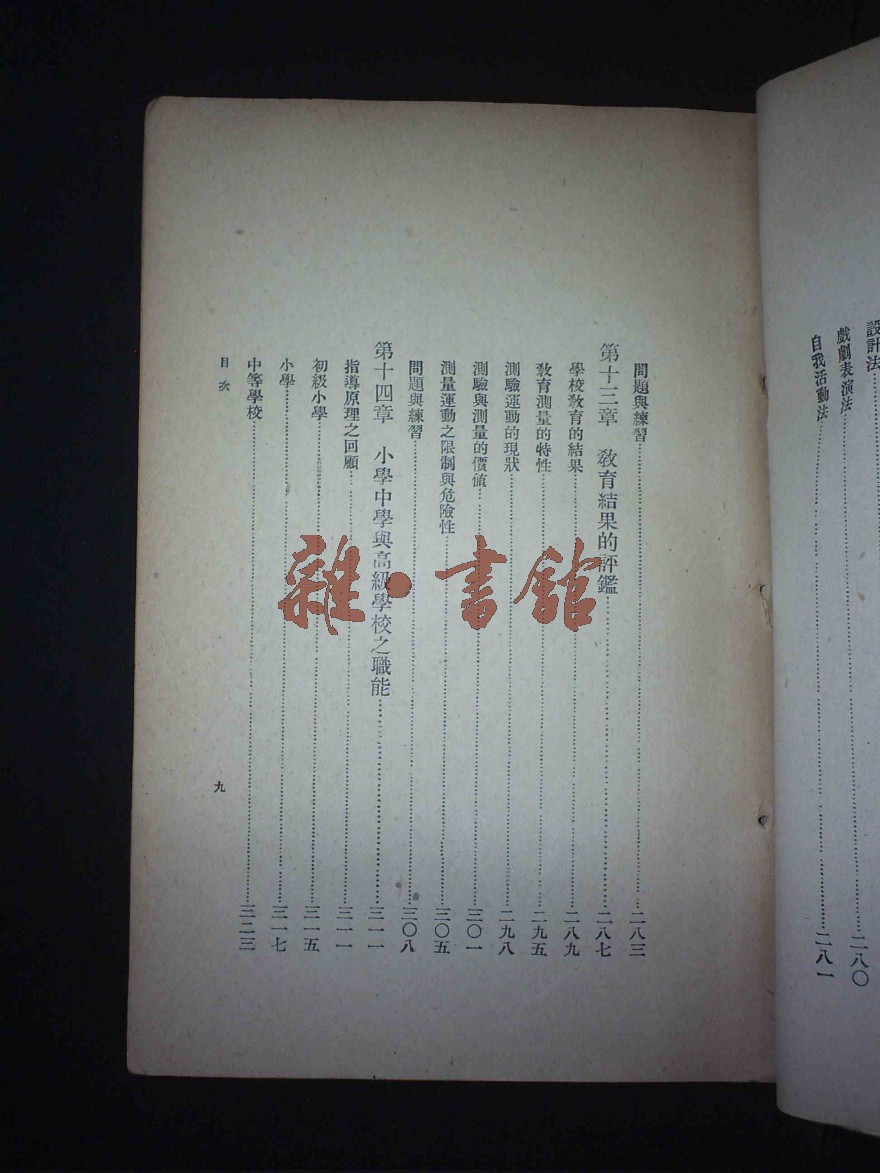 設計法
戲劇表演法……二八〇
自我活動法……二八一
問題與練習……二八三
第十三章　敎育結果的評鑑……二八七
學校敎育的結果……二八九
敎育測量的特性……二九五
測驗運動的現狀……二九八
測驗與測量的價值……三〇一
測量運動之限制與危險性……三〇五
問題與練習……三〇八
第十四章　小學中學與高級學校之職能……三一一
指導原理之回顧……三一一
初級小學……三一五
小學……三一七
中等學校……三二三
目次
九
雜·書館